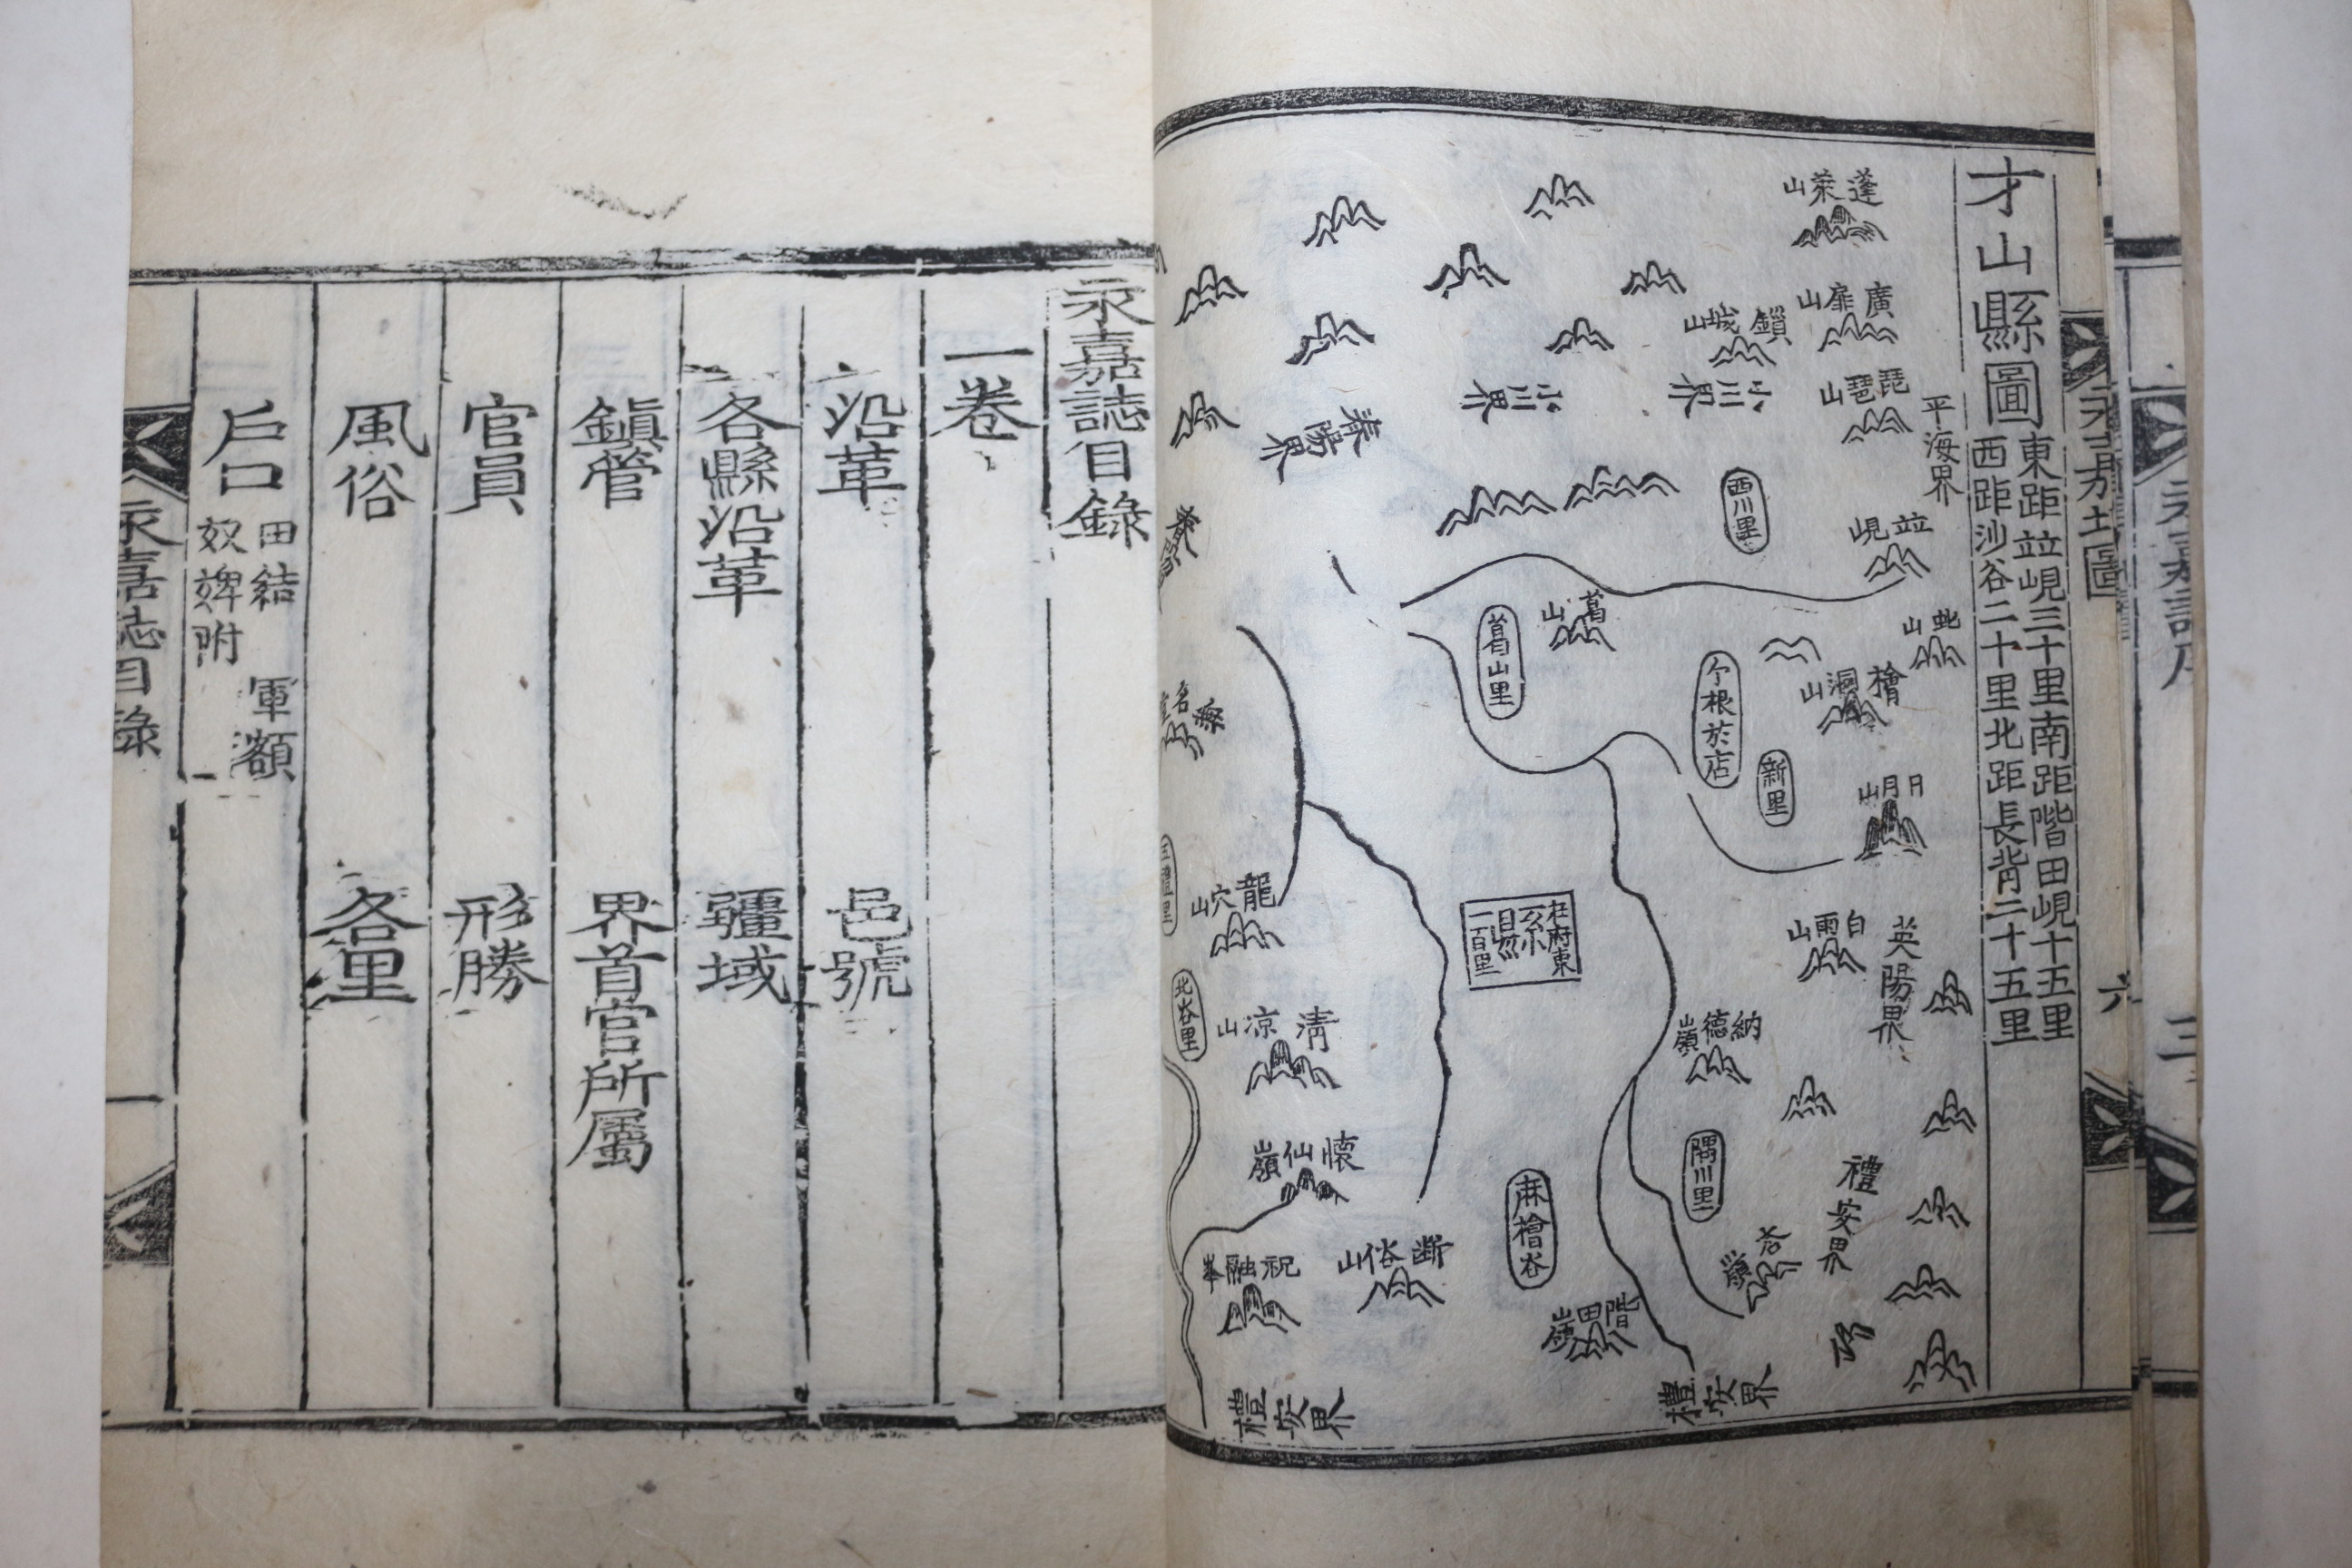 才山縣圖
東距竝峴三十里南距階田峴十五里
西距沙谷二十里北距長背二十五里
蓬萊山
廣扉山
鎖城山
琵琶山
平海界
小川界
小川界
奉陽界
西川里
竝峴
葛山
葛山里
檜洞山
亇根於店
新里
日月山
龍穴山
在府東
一百里
白雨山
英陽界
北谷里
清凉山
納德嶺
懷仙嶺
隅川里
禮安界
麻檜谷
祝融峯
斷俗山
階田嶺
禮安界
禮安界
六
永嘉誌目錄
一卷
沿革 邑號
各縣沿革 疆域
鎭管 界首官所屬
官員 形勝
風俗 各里
戶口 田結 軍額
奴婢附
永嘉誌目錄
一